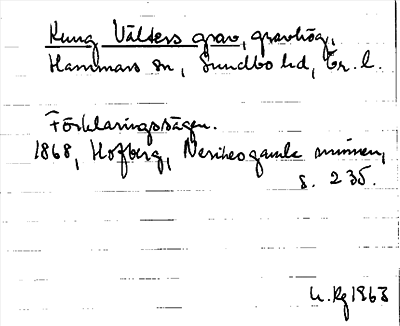 Kung Välters grav, gravhög,
Hammars sn, Sundbo hd, Ör. l.
Förklaringssägen.
1868, Hofberg, Nerikes gamla minnen,
s. 235.
u. Rg 1963